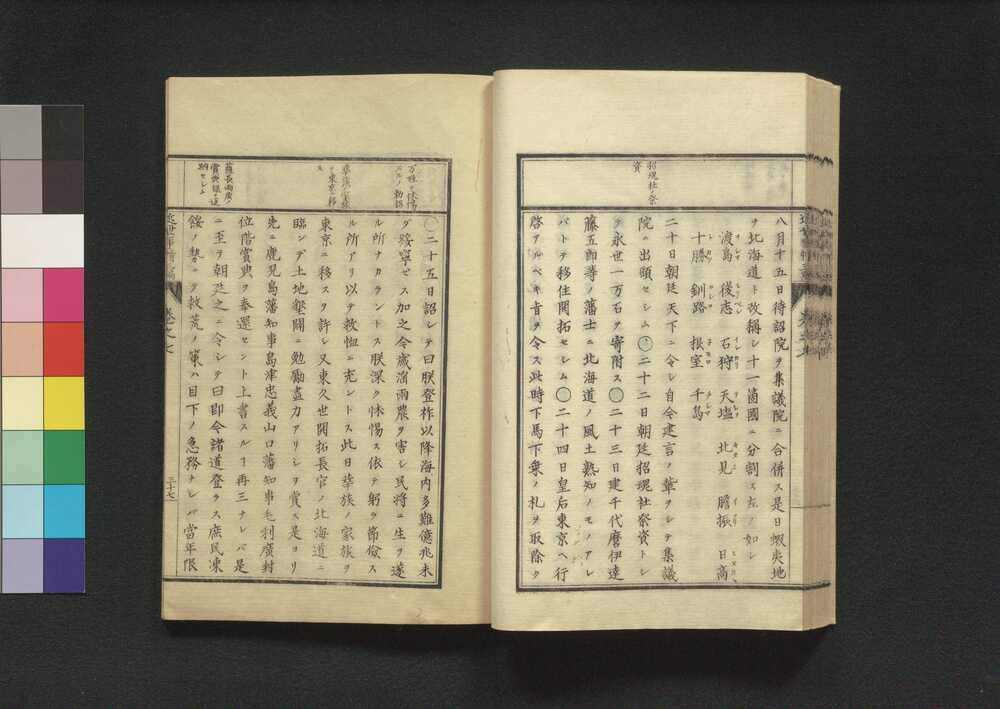 招魂社ノ祭
資
八月十五日待詔院ヲ集議院ニ合併ス是日蝦夷地
ヲ北海道ト改稱シ十一箇國ニ分割ス左ノ如シ
渡島 後志 石狩 天塩 北見 膽振 日高
十勝 釧路 根室 千島
二十日朝廷天下ニ令シ自今建言ノ輩ヲシテ集議
院ニ出頭セシム○二十二日朝廷招魂社祭資トシ
テ永世一万石ヲ寄附ス○二十三日建千代麿伊達
藤五郎等ノ藩士ニ北海道ノ風土熟知ノモノアレ
バトテ移住開拓セシム○二十四日皇后東京ヘ行
啓アルベキ旨ヲ令ス此時下馬下乗ノ札ヲ取除ク
万姓ヲ怵惕
スルノ勅詔
華族ノ家族
ヲ東京ニ移
ス
薩長両廣ノ
賞典禄ヲ返
納セシム
○二十五日詔シテ曰朕登祚以降海内多難億兆未
ダ綏寧セス加之今歳淫雨農ヲ害シ民将ニ生ヲ遂
ル所ナカラントス朕深ク怵惕ス依テ躬ラ節儉ス
ル所アリ以テ救恤ニ充ントス此日華族ノ家族ヲ
東京ニ移スヲ許シ又東久世開拓長官ノ北海道ニ
臨ンデ土地墾闢ニ勉勵盡力アリシヲ賞ス是ヨリ
先ニ鹿児島藩知事島津忠義山口藩知事毛利廣封
位階賞典ヲ奉還セント上書スルヿ再三ナレバ是
ニ至ヲ朝廷之ニ令シテ曰即今諸道登ラス庶民凍
餒ノ勢ニテ救荒ノ策ハ目下ノ急務ナレバ當年限
三十七